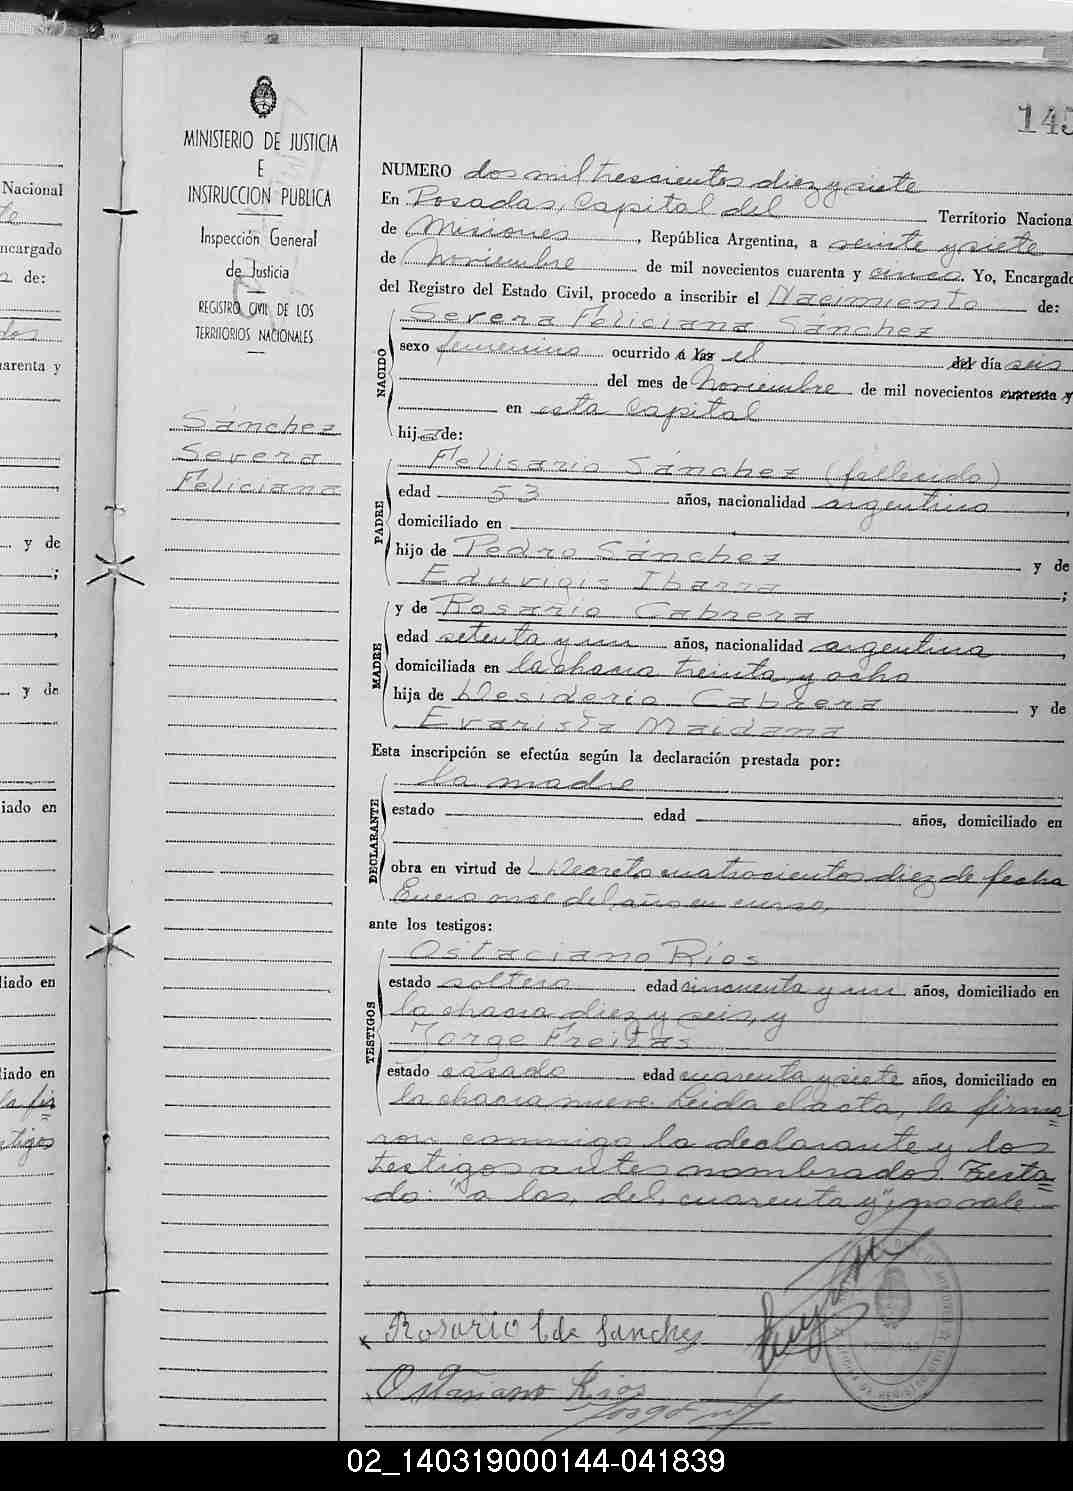 145
MINISTERIO DE JUSTICIA
E
INSTRUCCION PUBLICA
Inspección General
de Justicia
REGISTRO CIVIL DE LOS
TERRITORIOS NACIONALES
Sánchez
Severa
Feliciana
NUMERO dos mil trescientos diez y siete
En Posadas, Capital del Territorio Naciona
de Misiones, República Argentina, a veinte y siete
de Noviembre de mil novecientos cuarenta y cinco. Yo, Encargado
del Registro del Estado Civil, procedo a inscribir el Nacimiento de:
Severa Feliciana Sánchez
NACIDO
sexo femenino ocurrido a las el del día seis
del mes de Noviembre de mil novecientos cuarenta y
en esta Capital
hija de:
Felisario Sánchez (fallecido)
PADRE
edad 53 años, nacionalidad argentina,
domiciliado en
hijo de Pedro Sánchez y de
Eduvigis Ibarra;
y de Rosario Cabrera
MADRE
edad setenta y un años, nacionalidad argentina,
domiciliada en la chacra treinta y ocho
hija de Desiderio Cabrera y de
Evarista Maidana
Esta inscripción se efectúa según la declaración prestada por:
la madre
DECLARANTE
estado edad años, domiciliado en
obra en virtud de Decreto cuatrocientos diez de fecha
Enero once del año en curso,
ante los testigos:
Ostaciano Ríos
TESTIGOS
estado soltero edad cincuenta y un años, domiciliado en
la chacra diez y seis, y
Jorge Freitas
estado casado edad cuarenta y siete años, domiciliado en
la chacra nueve. Leida el acta, la firma=
ron conmigo la declarante y los
testigos antes nombrados. Testa=
do: "a las, del, cuarenta y", no vale.—
Rosario C de Sanchez
Ostasiano Rios
Nacional
ncargado
de:
arenta y
y de
;
y de
iado en
liado en
liado en
la fir
=
stigos
02_140319000144-041839